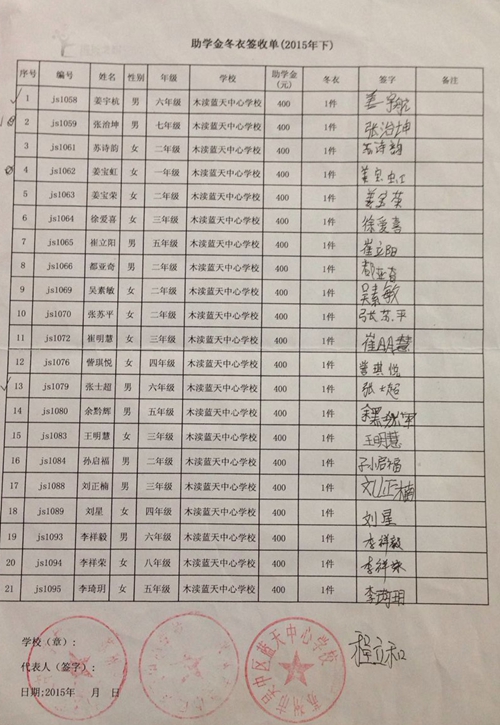 助学金冬衣签收单(2015年下)
序号 编号 姓名 性别 年级 学校 助学金(元) 冬衣 签字 备注
1 js1058 姜宇杭 男 六年级 木渎蓝天中心学校 400 1件 姜宇杭
2 js1059 张治坤 男 七年级 木渎蓝天中心学校 400 1件 张治坤
3 js1061 苏诗韵 女 二年级 木渎蓝天中心学校 400 1件 苏诗韵
4 js1062 姜宝虹 女 一年级 木渎蓝天中心学校 400 1件 姜宝虹
5 js1063 姜宝荣 女 二年级 木渎蓝天中心学校 400 1件 姜宝荣
6 js1064 徐爱喜 女 三年级 木渎蓝天中心学校 400 1件 徐爱喜
7 js1065 崔立阳 男 五年级 木渎蓝天中心学校 400 1件 崔立阳
8 js1066 都亚奇 男 二年级 木渎蓝天中心学校 400 1件 都亚奇
9 js1069 吴素敏 女 二年级 木渎蓝天中心学校 400 1件 吴素敏
10 js1070 张苏平 女 二年级 木渎蓝天中心学校 400 1件 张苏平
11 js1072 崔明慧 女 三年级 木渎蓝天中心学校 400 1件 崔明慧
12 js1076 訾琪悦 女 四年级 木渎蓝天中心学校 400 1件 訾琪悦
13 js1079 张士超 男 六年级 木渎蓝天中心学校 400 1件 张士超
14 js1080 余黔辉 男 五年级 木渎蓝天中心学校 400 1件
15 js1083 王明慧 女 三年级 木渎蓝天中心学校 400 1件 王明慧
16 js1084 孙启福 男 二年级 木渎蓝天中心学校 400 1件 孙启福
17 js1088 刘正楠 男 三年级 木渎蓝天中心学校 400 1件 刘正楠
18 js1089 刘星 女 四年级 木渎蓝天中心学校 400 1件 刘星
19 js1093 李祥毅 男 六年级 木渎蓝天中心学校 400 1件 李祥毅
20 js1094 李祥荣 女 八年级 木渎蓝天中心学校 400 1件 李祥荣
21 js1095 李琦玥 女 五年级 木渎蓝天中心学校 400 1件 李琦玥
学校（章）:
代表人（签字）:
日期:2015年 月 日
苏州市吴中区蓝天中心学校